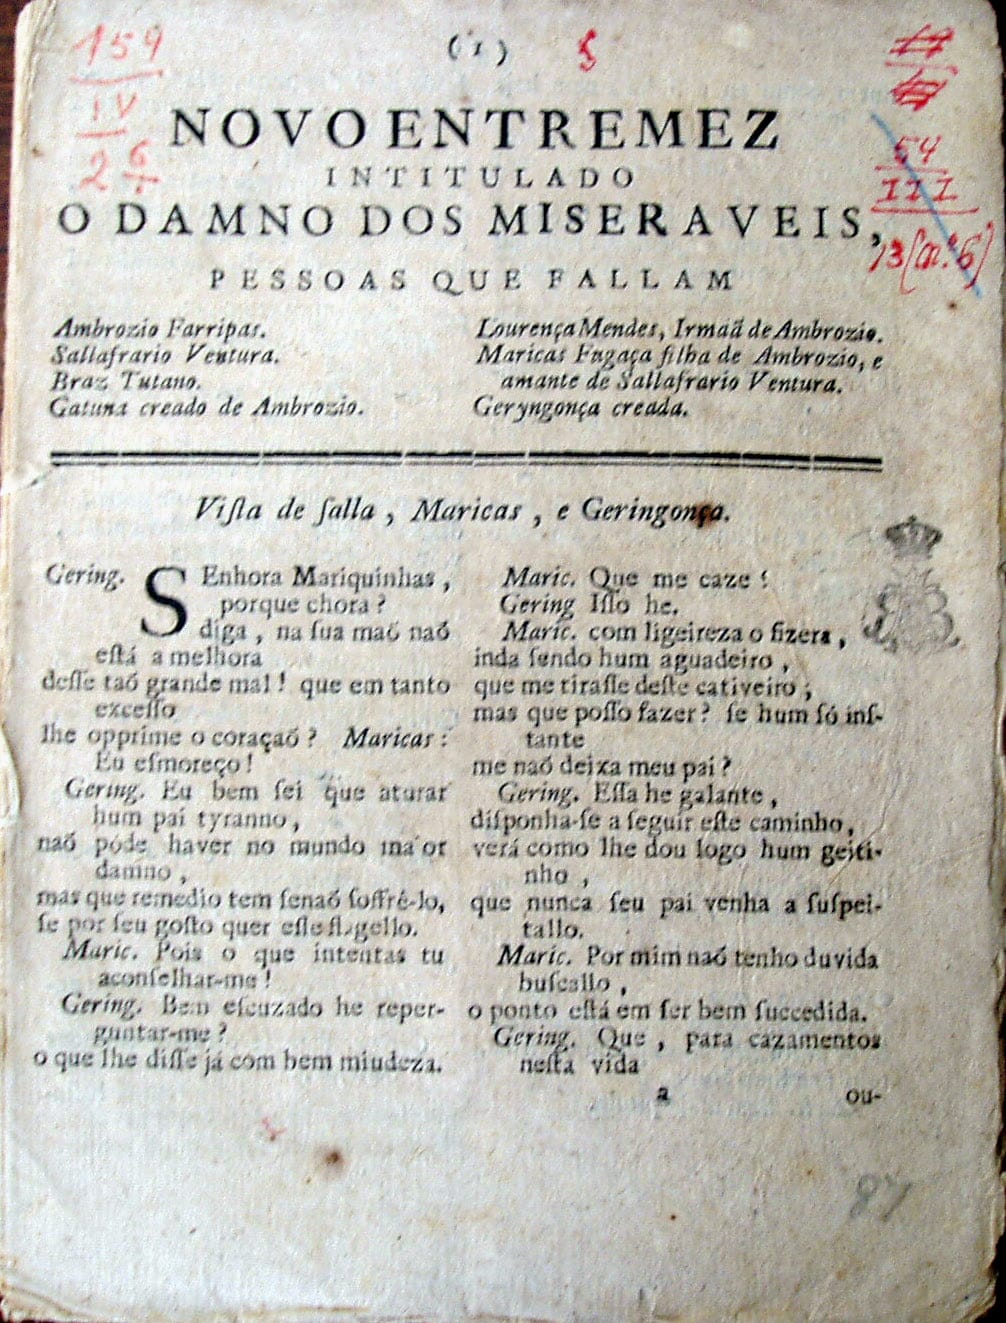 159
IV
2 6
(1)
5
54
III
13 (nº. 6)
NOVO ENTREMEZ
INTITULADO
O DAMNO DOS MISERAVEIS,
PESSOAS QUE FALLAM
Ambrozio Farripas.
Sallafrario Ventura.
Braz Tutano.
Gatuna creado de Ambrozio.
Lourença Mendes, Irmaã de Ambrozio.
Maricas Fugaça filha de Ambrozio, e
amante de Sallafrario Ventura.
Geryngonça creada.
Viſta de ſalla, Maricas, e Geringonça.
Gering. SEnhora Mariquinhas,
porque chora?
diga, na ſua maõ naõ
eſtá a melhora
deſſe taõ grande mal! que em tanto
exceſſo
lhe opprime o coraçaõ? Maricas:
Eu eſmoreço!
Gering. Eu bem ſei que aturar
hum pai tyranno,
naõ póde haver no mundo maior
damno,
mas que remedio tem ſenaõ ſoffrê-lo,
ſe por ſeu goſto quer eſſe flagello.
Maric. Pois o que intentas tu
aconſelhar-me!
Gering. Bem eſcuzado he reper-
guntar-me?
o que lhe diſſe já com bem miudeza.
Maric. Que me caze!
Gering Iſſo he.
Maric. com ligeireza o fizera,
inda ſendo hum aguadeiro,
que me tiraſſe deſte cativeiro;
mas que poſſo fazer? ſe hum ſó inſ-
tante
me naõ deixa meu pai?
Gering. Eſſa he galante,
diſponha-ſe a ſeguir eſte caminho,
verá como lhe dou logo hum geiti-
nho,
que nunca ſeu pai venha a ſuſpei-
tallo.
Maric. Por mim naõ tenho duvida
buſcallo,
o ponto eſtá em ſer bem ſuccedida.
Gering. Que, para cazamentos
neſta vida
a
ou-
87